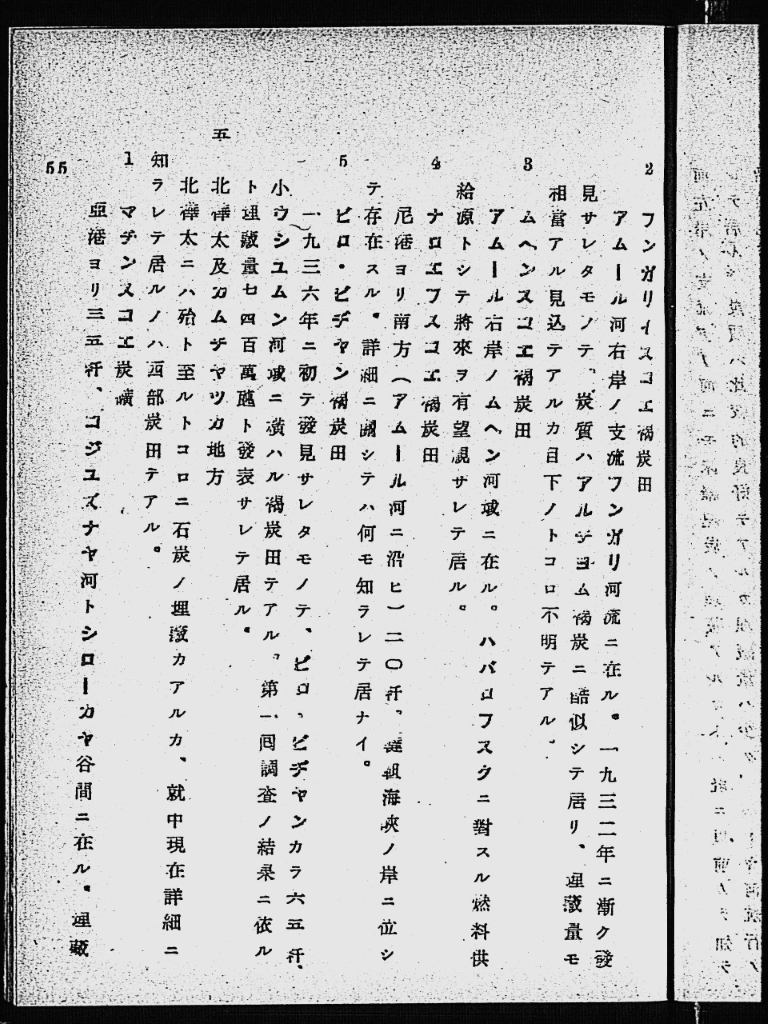 2 フンガリイスコエ褐炭田
アムール河右岸ノ支流フンガリ河流ニ在ル。一九三二年ニ漸ク發
見サレタモノテ、炭質ハアルチヨム褐炭ニ酷似シテ居リ、埋藏量モ
相當アル見込テアルカ目下ノトコロ不明テアル、
3 ムヘンスコエ褐炭田
アムール右岸ノムヘン河域ニ在ル。ハバロフスクニ對スル燃料供
給源トシテ將來ヲ有望視サレテ居ル。
4 ナロエフスコエ褐炭田
尼港ヨリ南方(アムール河ニ沿ヒ)二〇粁、韃靼海峽ノ岸ニ位シ
テ存在スル。詳細ニ關シテハ何モ知ラレテ居ナイ。
5 ビロ・ビヂヤン褐炭田
一九三六年ニ初テ發見サレタモノテ、ビロ、ビヂヤンカラ六五粁、
小ウシユムン河域ニ横ハル褐炭田テアル、第一囘調査ノ結果ニ依ル
ト埋藏量七四百萬瓲ト發表サレテ居ル。
五 北樺太及カムチヤツカ地方
北樺太ニハ殆ト至ルトコロニ石炭ノ埋藏カアルカ、就中現在詳細ニ
知ラレテ居ルノハ西部炭田テアル。
1 マチンスコエ炭礦
亞港ヨリ三五粁、コジユズナヤ河トシローカヤ谷間ニ在ル。埋藏
55